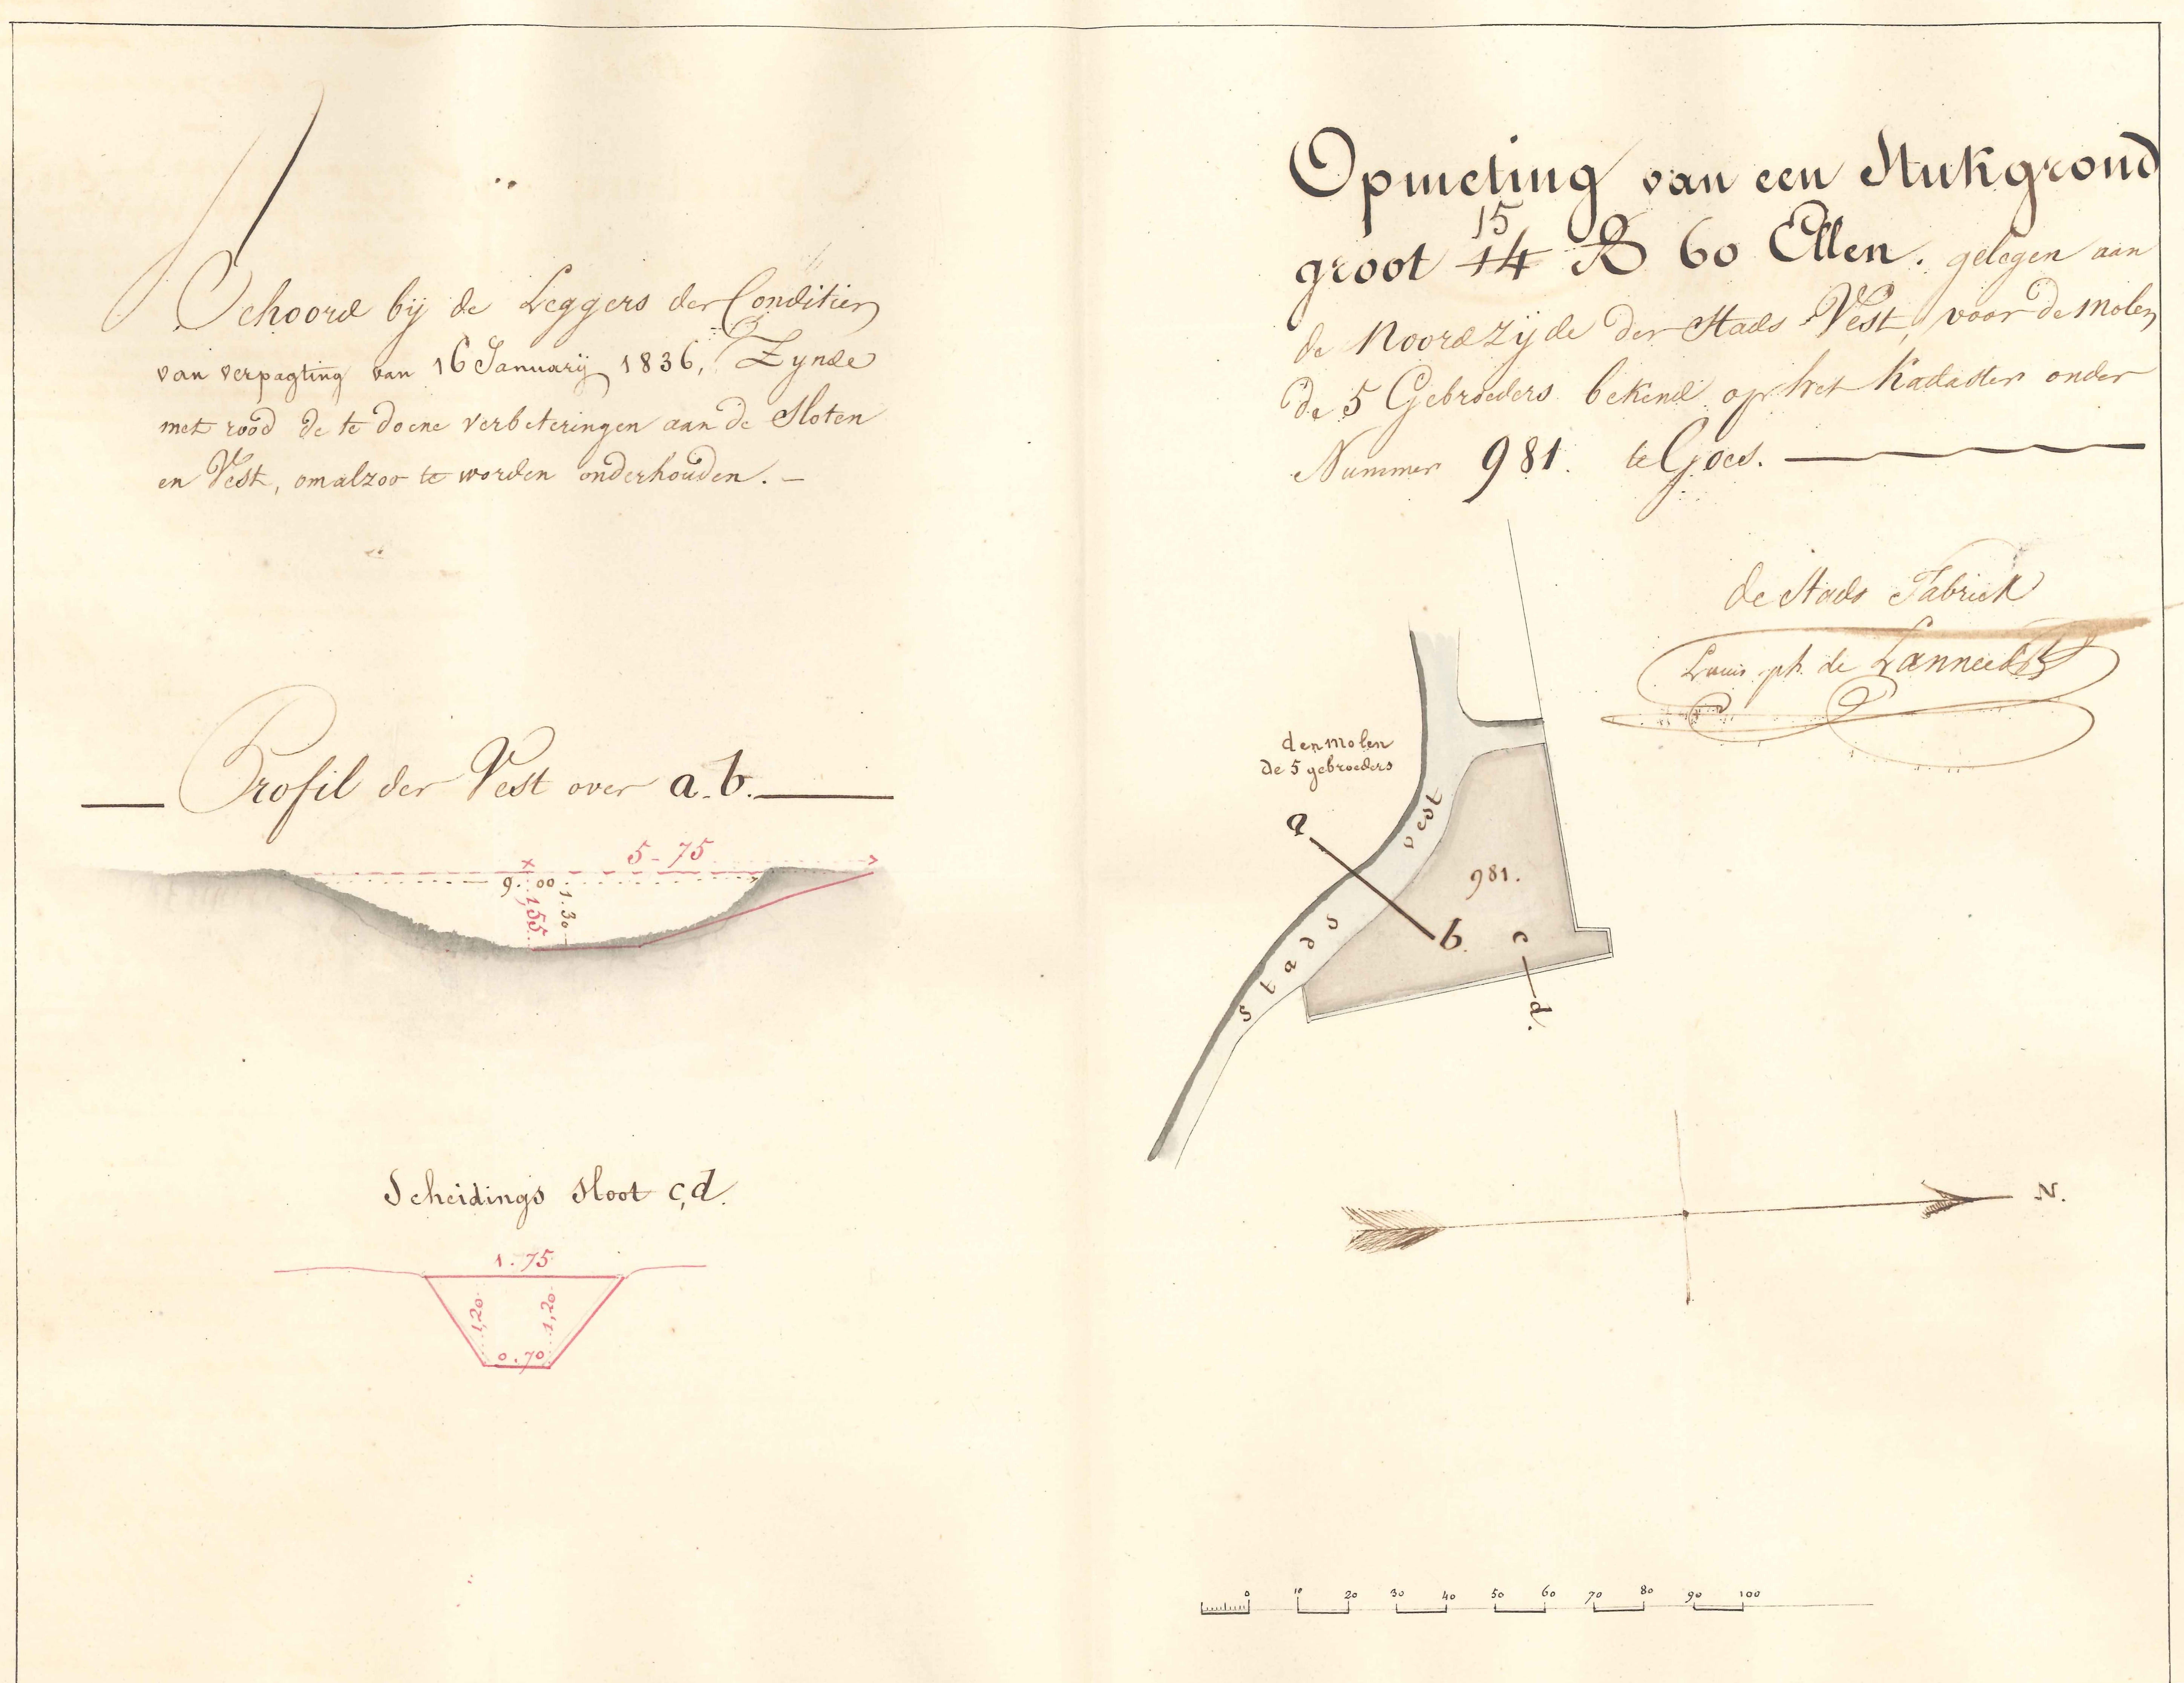 Behoord bij de Leggers der Conditien
van verpagting van 16 Januarij 1836, Zynde
met rood de te doene verbeteringen aan de Sloten
en Vest, om alzoo te worden onderhouden. -
Profil der Vest over a.b.
5-75
9.00
1.30
1,55
Scheidings Sloot c,d.
1.75
1,20
1,20
0.70
Opmeting van een Stuk grond
15
groot 14 R 60 Ellen. gelegen aan
de Noordzyde der Stads Vest, voor de Molen
de 5 Gebroeders bekend op het Kadaster onder
Nummer 981. te Goes.
de Stads Fabriek
ph. de
den molen
de 5 gebroeders
a
Stads Vest
981.
b.
c
d.
N.
0 10 20 30 40 50 60 70 80 90 100